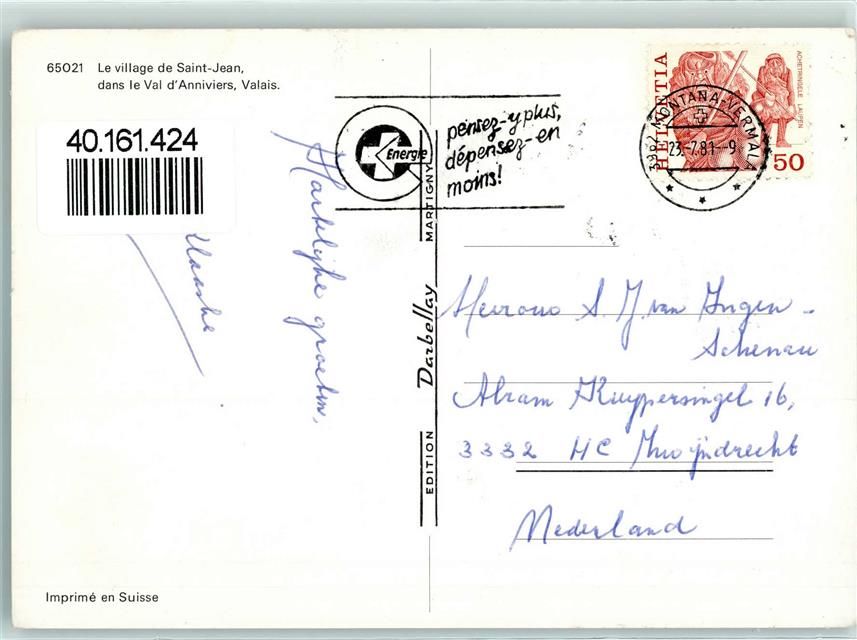 65021 Le village de Saint-Jean,
dans le Val d'Anniviers, Valais.
40.161.424
Hartelijke groeten,
Energie
pensez-y plus,
dépensez-en
moins!
HELVETIA
ACHETRINGELE LAUPEN
50
3962 MONTANA-VERMALA
23.-7.81.-9
EDITION Darbellay MARTIGNY
Mevrouw S. J. van Ingen-
Schenau
Abram Kuypersingel 16,
3332 HC Zwijndrecht
Nederland
Imprimé en Suisse